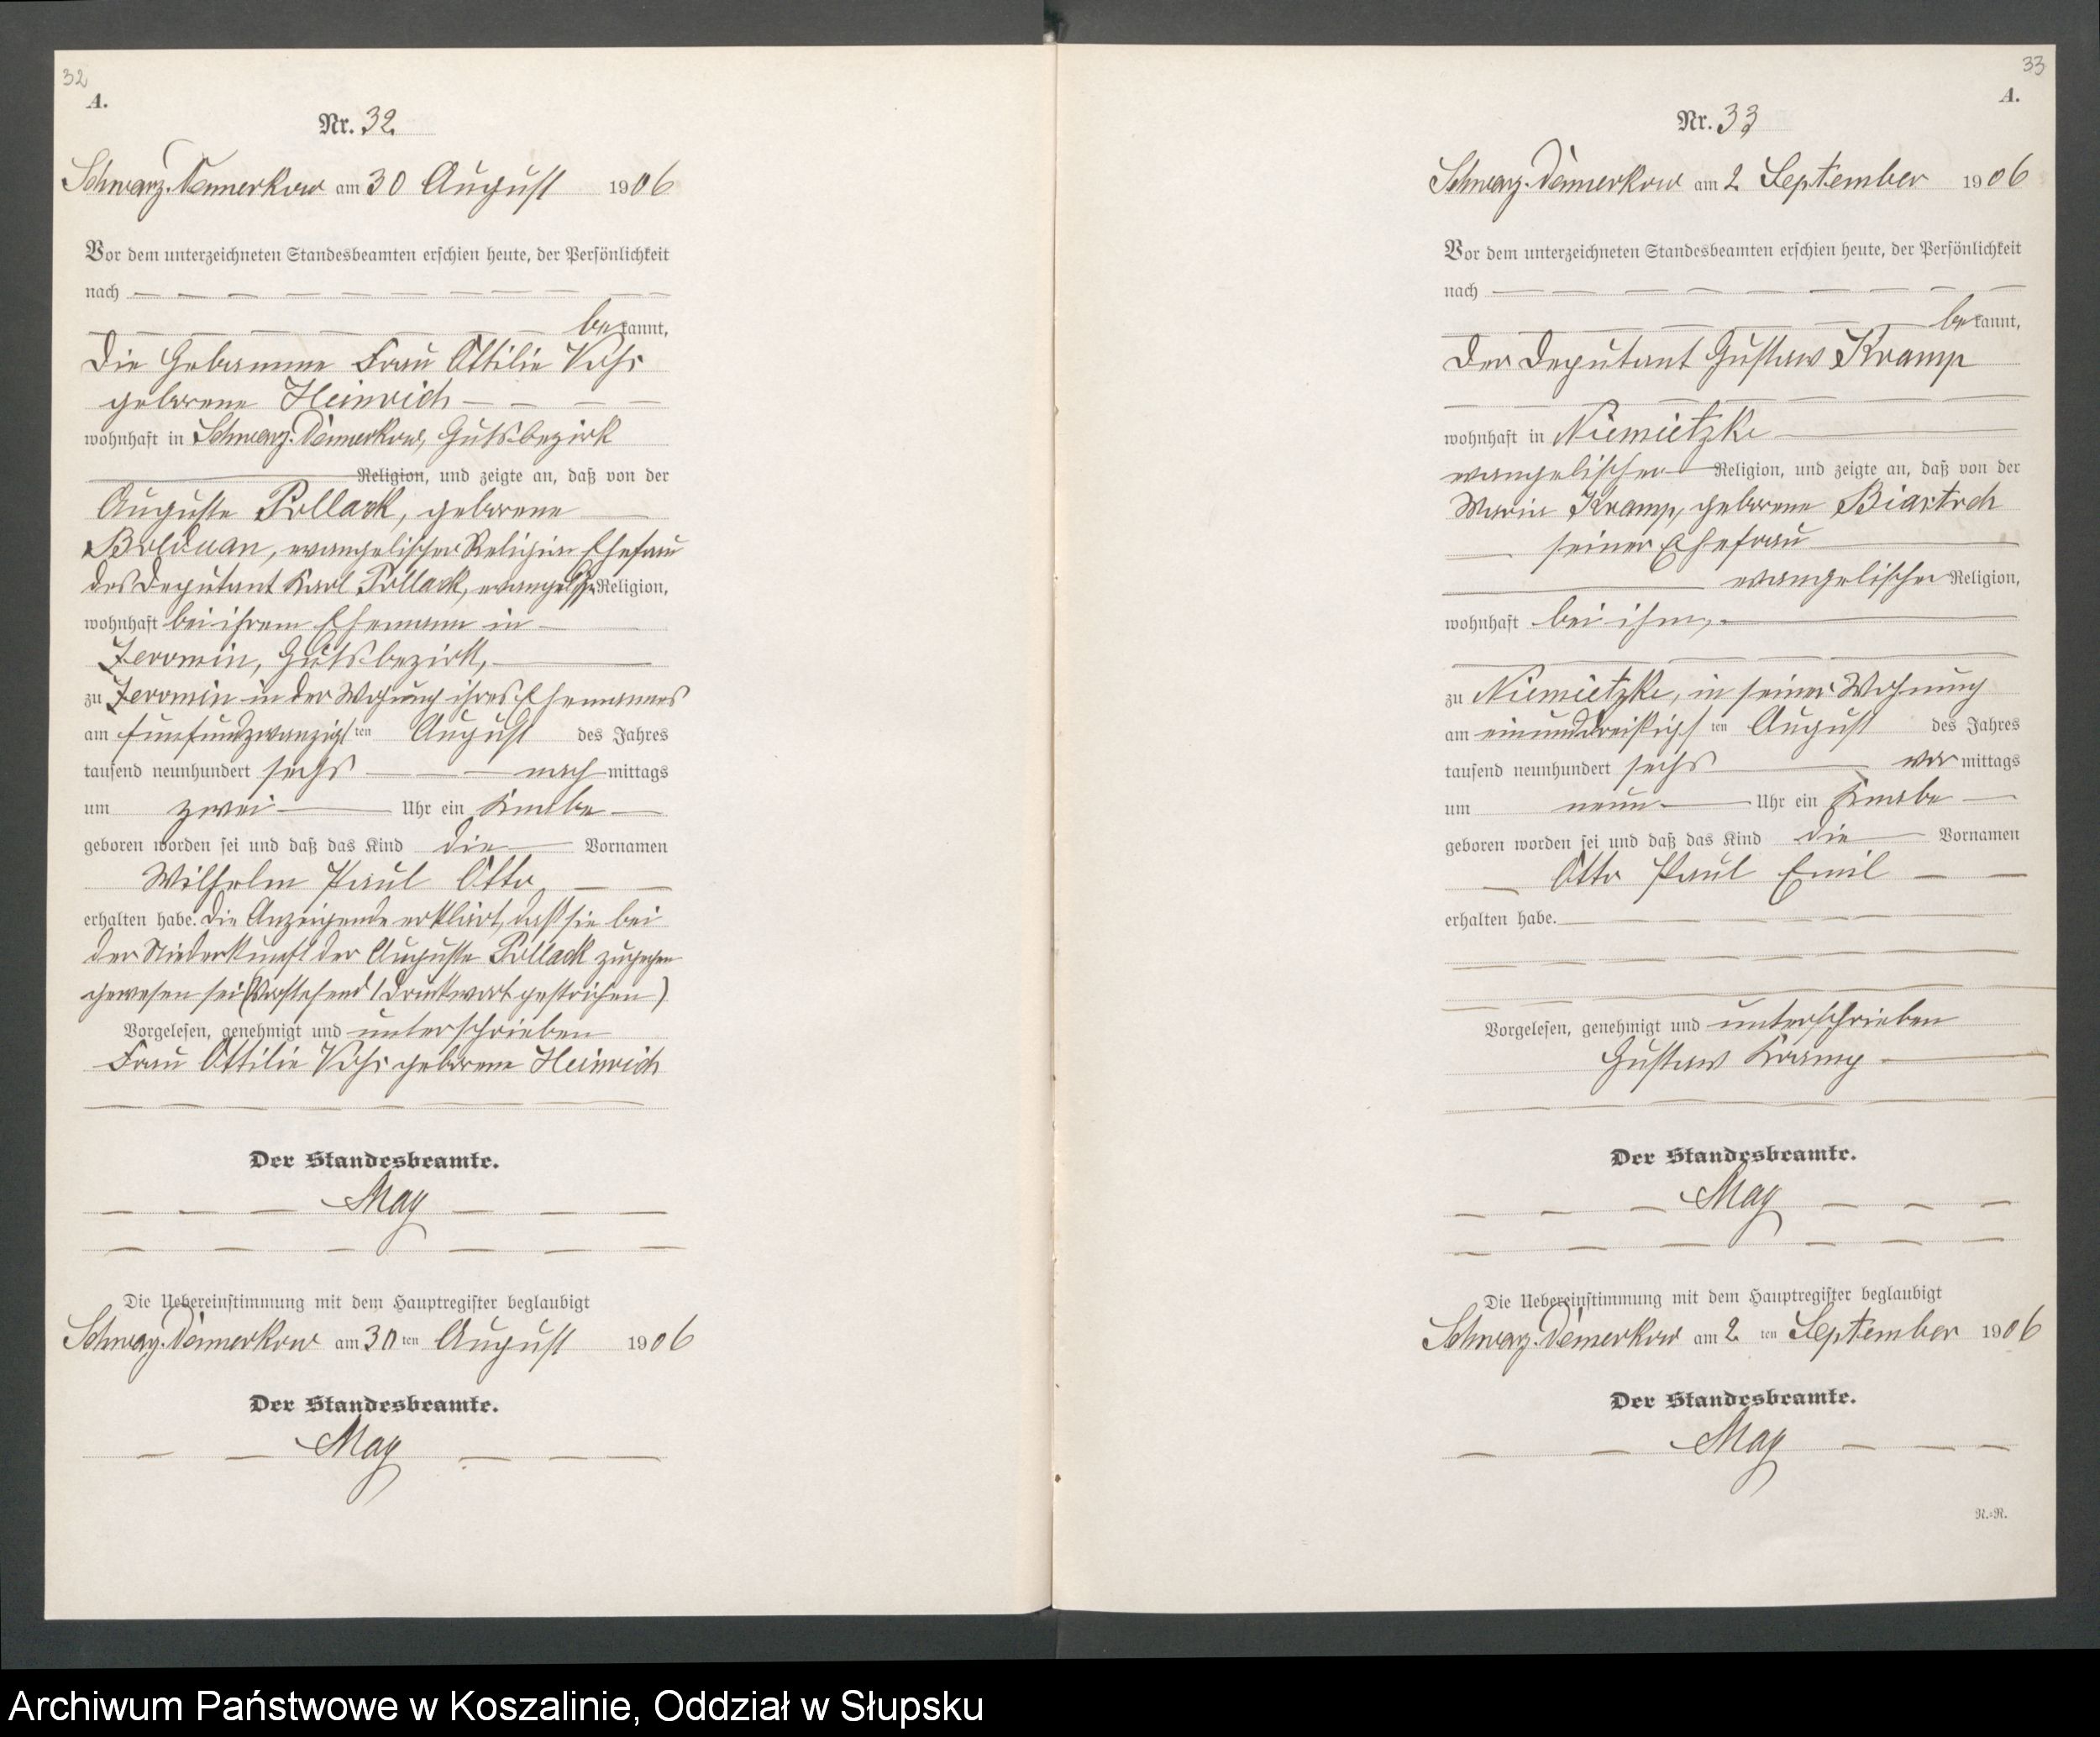 32
A.
Nr. 32.
Schwarz-Damerkow am 30 August 1906
Vor dem unterzeichneten Standesbeamten erschien heute, der Persönlichkeit
nach
bekannt,
die Hebamme Frau Ottilie Voss
geborene Heinrich
wohnhaft in Schwarz-Damerkow, Gutsbezirk
Religion, und zeigte an, daß von der
Auguste Pollack, geborene
Bolduan, evangelischer Religion Ehefrau
des Deputant Karl Pollack, evangelischer Religion,
wohnhaft bei ihrem Ehemann in
Jeromin, Gutsbezirk,
zu Jeromin in der Wohnung ihres Ehemannes
am fünfundzwanzigsten August des Jahres
tausend neunhundert sechs nachmittags
um zwei Uhr ein Knabe
geboren worden sei und daß das Kind die Vornamen
Wilhelm Paul Otto
erhalten habe. Die Anzeigende erklärt, daß sie bei
der Niederkunft der Auguste Pollack zugegen
gewesen sei (Vorstehend 1 Druckwort gestrichen)
Vorgelesen, genehmigt und unterschrieben
Frau Ottilie Voss geborene Heinrich
Der Standesbeamte.
May
Die Uebereinstimmung mit dem Hauptregister beglaubigt
Schwarz-Damerkow am 30ten August 1906
Der Standesbeamte.
May
33
A.
Nr. 33
Schwarz-Damerkow am 2 September 1906
Vor dem unterzeichneten Standesbeamten erschien heute, der Persönlichkeit
nach
bekannt,
der Deputant Gustav Kramp
wohnhaft in Niemietzke
evangelischer Religion, und zeigte an, daß von der
Maria Kramp, geborene
seiner Ehefrau
evangelischer Religion,
wohnhaft bei ihm,
zu Niemietzke, in seiner Wohnung
am einunddreißigsten August des Jahres
tausend neunhundert sechs vormittags
um neun Uhr ein Knabe
geboren worden sei und daß das Kind die Vornamen
Otto Paul Emil
erhalten habe.
Vorgelesen, genehmigt und unterschrieben
Gustav Kramp
Der Standesbeamte.
May
Die Uebereinstimmung mit dem Hauptregister beglaubigt
Schwarz-Damerkow am 2 ten September 1906
Der Standesbeamte.
May
N.=N.
Archiwum Państwowe w Koszalinie, Oddział w Słupsku